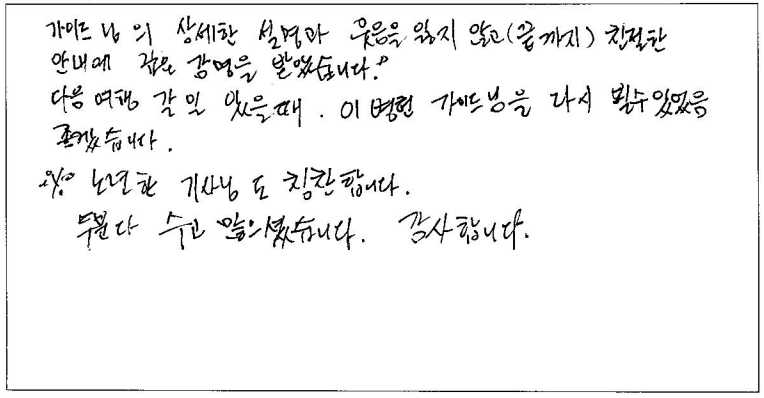 가이드 님 의 상세한 설명과 웃음을 잃지 않고(끝까지) 친절한
안내에 깊은 감명을 받았습니다.
다음 여행 갈 일 있을때. 이병헌 가이드님을 다시 뵐수있었음
좋겠습니다.
※ 노련한 기사님 도 칭찬합니다.
두분다 수고 많으셨습니다. 감사합니다.